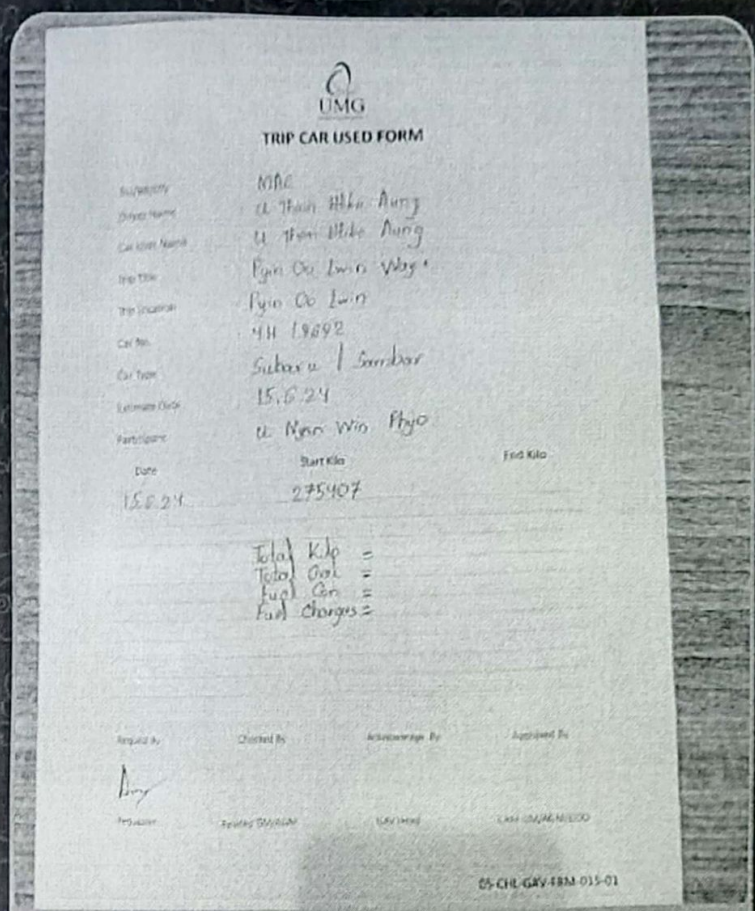 UMG
TRIP CAR USED FORM
Driver Name U Than Htike Aung
Car User Name U Than Htike Aung
Trip Title Pyin Oo Lwin
Trip Location Pyin Oo Lwin
Car No.
Car Type Subaru / Sambar
Estimate Date 15.6.24
Participant U Nyan Win Phyo
Date Start Kilo End Kilo
15.6.24 275407
Total Kilo =
Total Gal =
Fuel Con =
Fuel Charges =
Request By Checked By Acknowledge By Approved By
Requester
05-CHL-GAV-FRM-015-01